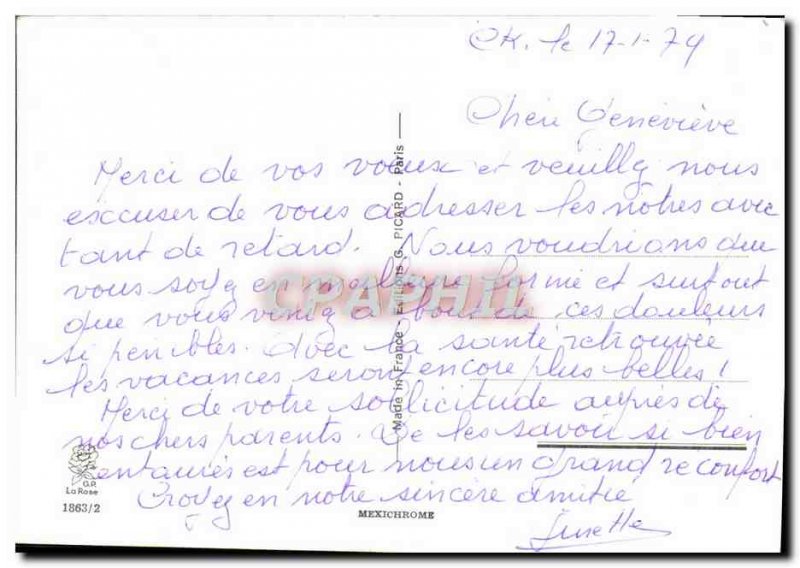 le 17-1-79
Chère Geneviève
Merci de vos voeux et veuillez nous
excuser de vous adresser les nôtres avec
tant de retard. Nous voudrions que
vous soyez en meilleure forme et surtout
que vous veniez à bout de ces douleurs
si penibles. Avec la santé retrouvée
les vacances seront encore plus belles !
Merci de votre sollicitude auprès de
nos chers parents. De les savoir si bien
entourés est pour nous un grand reconfort
Croyez en notre sincère amitié
CPAPHIL
Made in France - Editions G. PICARD - Paris
G.P.
La Rose
1863/2
MEXICHROME